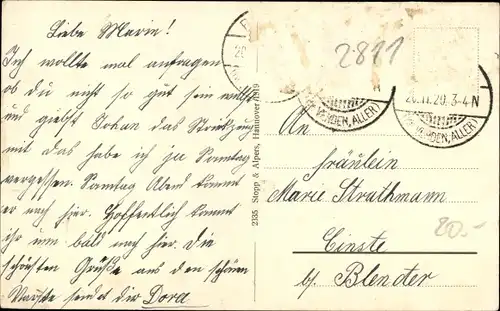 Liebe Marie!
Ich wollte mal anfragen
ob du nicht so gut sein willst
und giebst Johan das Strickzeug
mit das habe ich ja Sonntag
vergessen. Sonntag Abend kommt
er nach hier. Hoffentlich kommt
ihr nun bald nach hier. Die
schönsten Grüße aus den schönen
sendet dir Dora
2335 Stopp & Alpers, Hannover 1919
2811
20.11.20. 3-4 N
(Kr. VERDEN, ALLER)
An
Fräulein
Marie Strathmann
Einste
b/ Blender
20.-